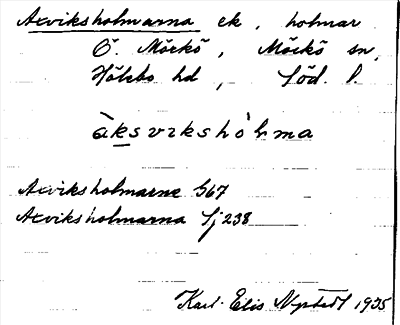 Axviksholmarna ek, holmar
Ö. Mörkö, Mörkö sn,
Hölebo hd, Söd. l.
àksvıkshòlma
Axviksholmarne G67
Axviksholmarna Sj 238
Karl-Elis Nystedt 1935